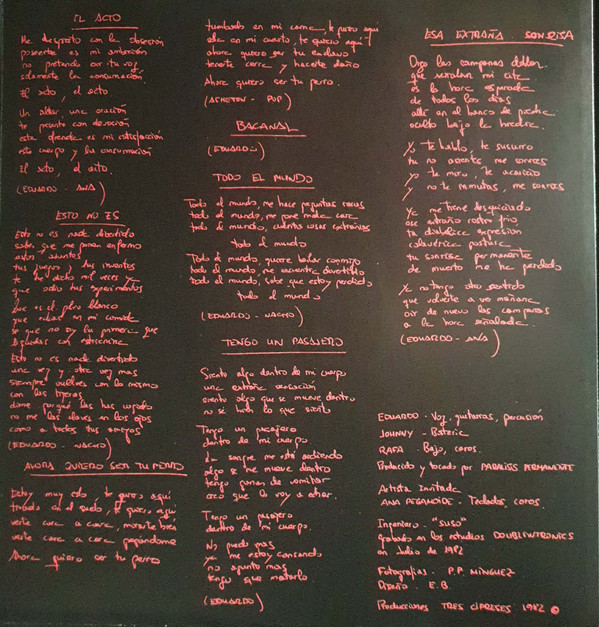 EL ACTO
Me despierto con la obsesión
poseerte es mi ambición
no pretendo oir tu voz
solamente la consumación.
El acto, el acto
Un altar una oración
te presento con devoción
este drenete es mi satisfacción
este cuerpo y la consumación
El acto, el acto.
(EDUARDO - ANA)
ESTO NO ES
Esto no es nada divertido
sabes que me ponen enfermo
estos asuntos
tus juegos y tus inventos
te he dicho mil veces ya
que odio tus experimentos
Que es el polvo blanco
que echas en mi comida
se que no soy la primera que
Esto no es nada divertido
una vez y otra vez mas
siempre vuelves con lo mismo
con las tijeras
dime porqué las has cogido
no me las claves en los ojos
como a todos tus amigos
(EDUARDO - NACHO)
AHORA QUIERO SER TU PERRO
Estoy muy solo, te quiero aquí
tirado en el suelo, te quiero aquí
verte cara a cara
verte cara a cara
Ahora quiero ser tu perro
tumbado en mi cama, te quiero aquí
ata en mi cuarto, te quiero aquí
ahora quiero ser tu esclavo
tenerte cerca y hacerte daño
Ahora quiero ser tu perro.
(ASHETON - POP)
BACANAL
(EDUARDO)
TODO EL MUNDO
Todo el mundo, me hace preguntas raras
todo el mundo, me pone mala cara
todo el mundo, cuenta cosas extrañas
todo el mundo
Todo el mundo, quiere bailar conmigo
todo el mundo, me encuentra divertido
todo el mundo, sabe que estoy perdido
todo el mundo
(EDUARDO - NACHO)
TENGO UN PASAJERO
Siento algo dentro de mi cuerpo
una extraña sensación
siento algo que se mueve dentro
no sé bien lo que siento
Tengo un pasajero
dentro de mi cuerpo.
La sangre me está ardiendo
algo se me mueve dentro
tengo ganas de vomitar
creo que lo voy a echar.
Tengo un pasajero
dentro de mi cuerpo.
No puedo mas
ya me estoy cansando
no aguanto mas
tengo que matarlo
(EDUARDO)
ESA EXTRAÑA SONRISA
Oigo las campanas doblar
que señalan mi cita
es la hora esperada
de todos los dias
alli en el banco de piedra
oculto bajo la hiedra.
Yo te hablo, te susurro
tu no asientes, me sonries
yo te miro, te acaricio
y no te inmutas, me sonries
Ya me tiene desquiciado
ese extraño rostro frio
tu diabólica expresión
cadavérica postura
tu sonrisa permanente
de muerto me ha perdido
Ya no tengo otro sentido
que volverte a ver mañana
oir de nuevo las campanas
a la hora señalada.
(EDUARDO - ANA)
EDUARDO - Voz, guitarras, percusión
JOHNNY - Batería
RAFA - Bajo, coros.
Producido y tocado por PARALISIS PERMANENTE
Artista Invitada
ANA PEGAMOIDE - Teclados, coros.
Ingeniero - "SUSO"
grabado en los estudios DOUBLEWTRONICS
en Julio de 1982
Fotografias - P.P. MINGUEZ
Diseño - E.B.
Producciones TRES CIPRESES 1982 ©